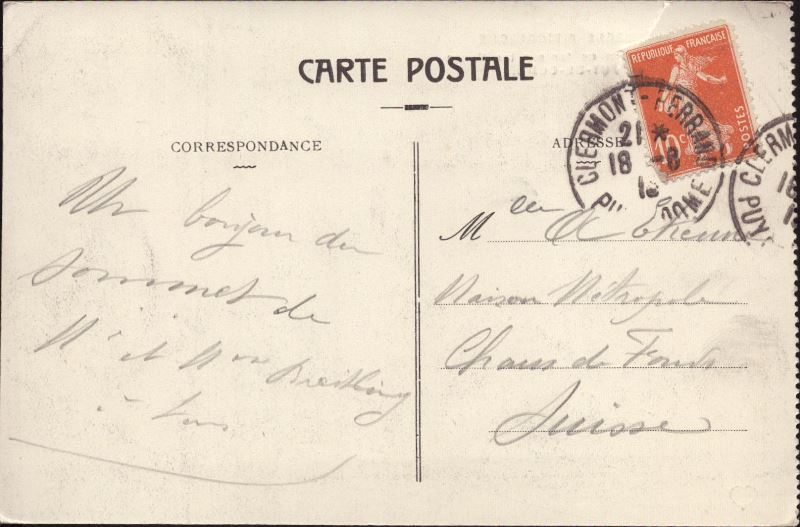 CARTE POSTALE
CORRESPONDANCE
ADRESSE
RÉPUBLIQUE FRANÇAISE
10 c
POSTES
CLERMONT-FERRAND
21 *
18 -8
PUY DOME
CLERM
18
PUY
Un bonjour du
sommet de
Mr et Mme Breitling
à tous
Mlle A
Maison Métropole
Chaux de Fonds
Suisse